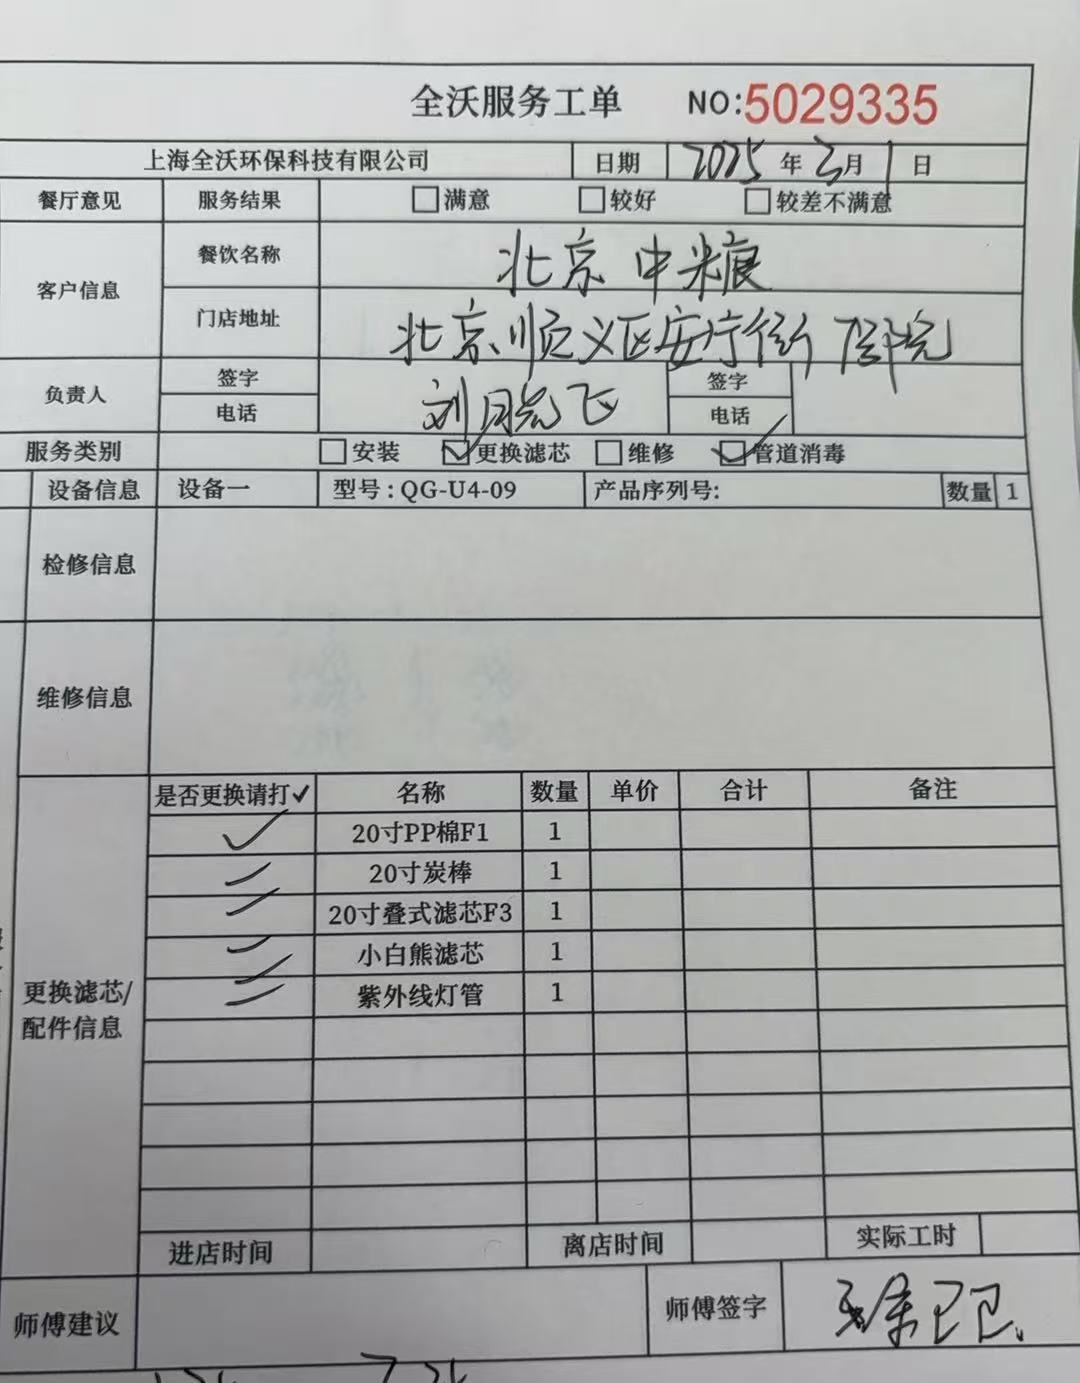 全沃服务工单 NO:5029335
上海全沃环保科技有限公司 日期 2025 年 3 月 1 日
餐厅意见 服务结果 满意 较好 较差不满意
客户信息 餐饮名称 北京中粮
门店地址 北京顺义区安 街
负责人 签字 刘晓飞 签字
电话 电话
服务类别 安装 更换滤芯 维修 管道消毒
设备信息 设备一 型号:QG-U4-09 产品序列号: 数量 1
检修信息
维修信息
是否更换请打✓ 名称 数量 单价 合计 备注
✓ 20寸PP棉F1 1
✓ 20寸炭棒 1
✓ 20寸叠式滤芯F3 1
✓ 小白熊滤芯 1
✓ 紫外线灯管 1
更换滤芯/
配件信息
进店时间 离店时间 实际工时
师傅建议 师傅签字